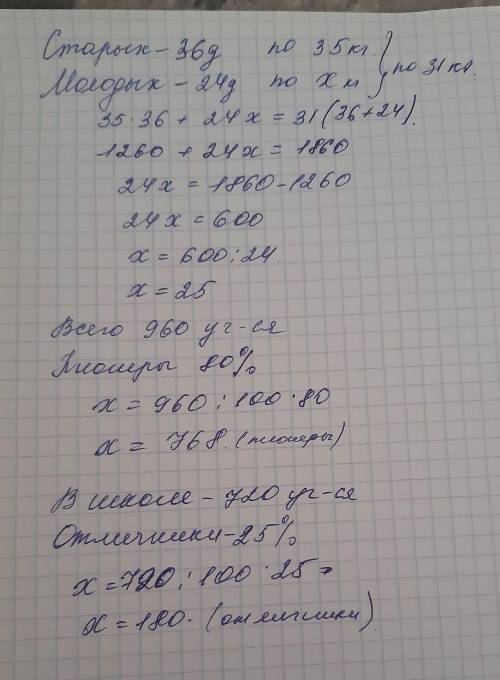 Старых - 36д по 35 кг. } по 31 кг.
Молодых - 24д по х
35·36 + 24х = 31(36+24).
1260 + 24х = 1860
24х = 1860-1260
24х = 600
х = 600:24
х = 25
Всего 960 уч-ся
Пионеры 80%
х = 960:100·80
х = 768. (пионеры)
В школе - 720 уч-ся
Отличники - 25%
х = 720:100·25
х = 180. (отличники)